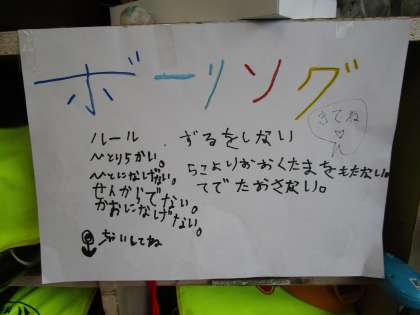 ボーリング
きてね
ルール
ひとり1かい。
ひとになげない。
せんからでない。
かおになげない。
ずるをしない
5こよりおおくたまをもたない。
てでたおさない。